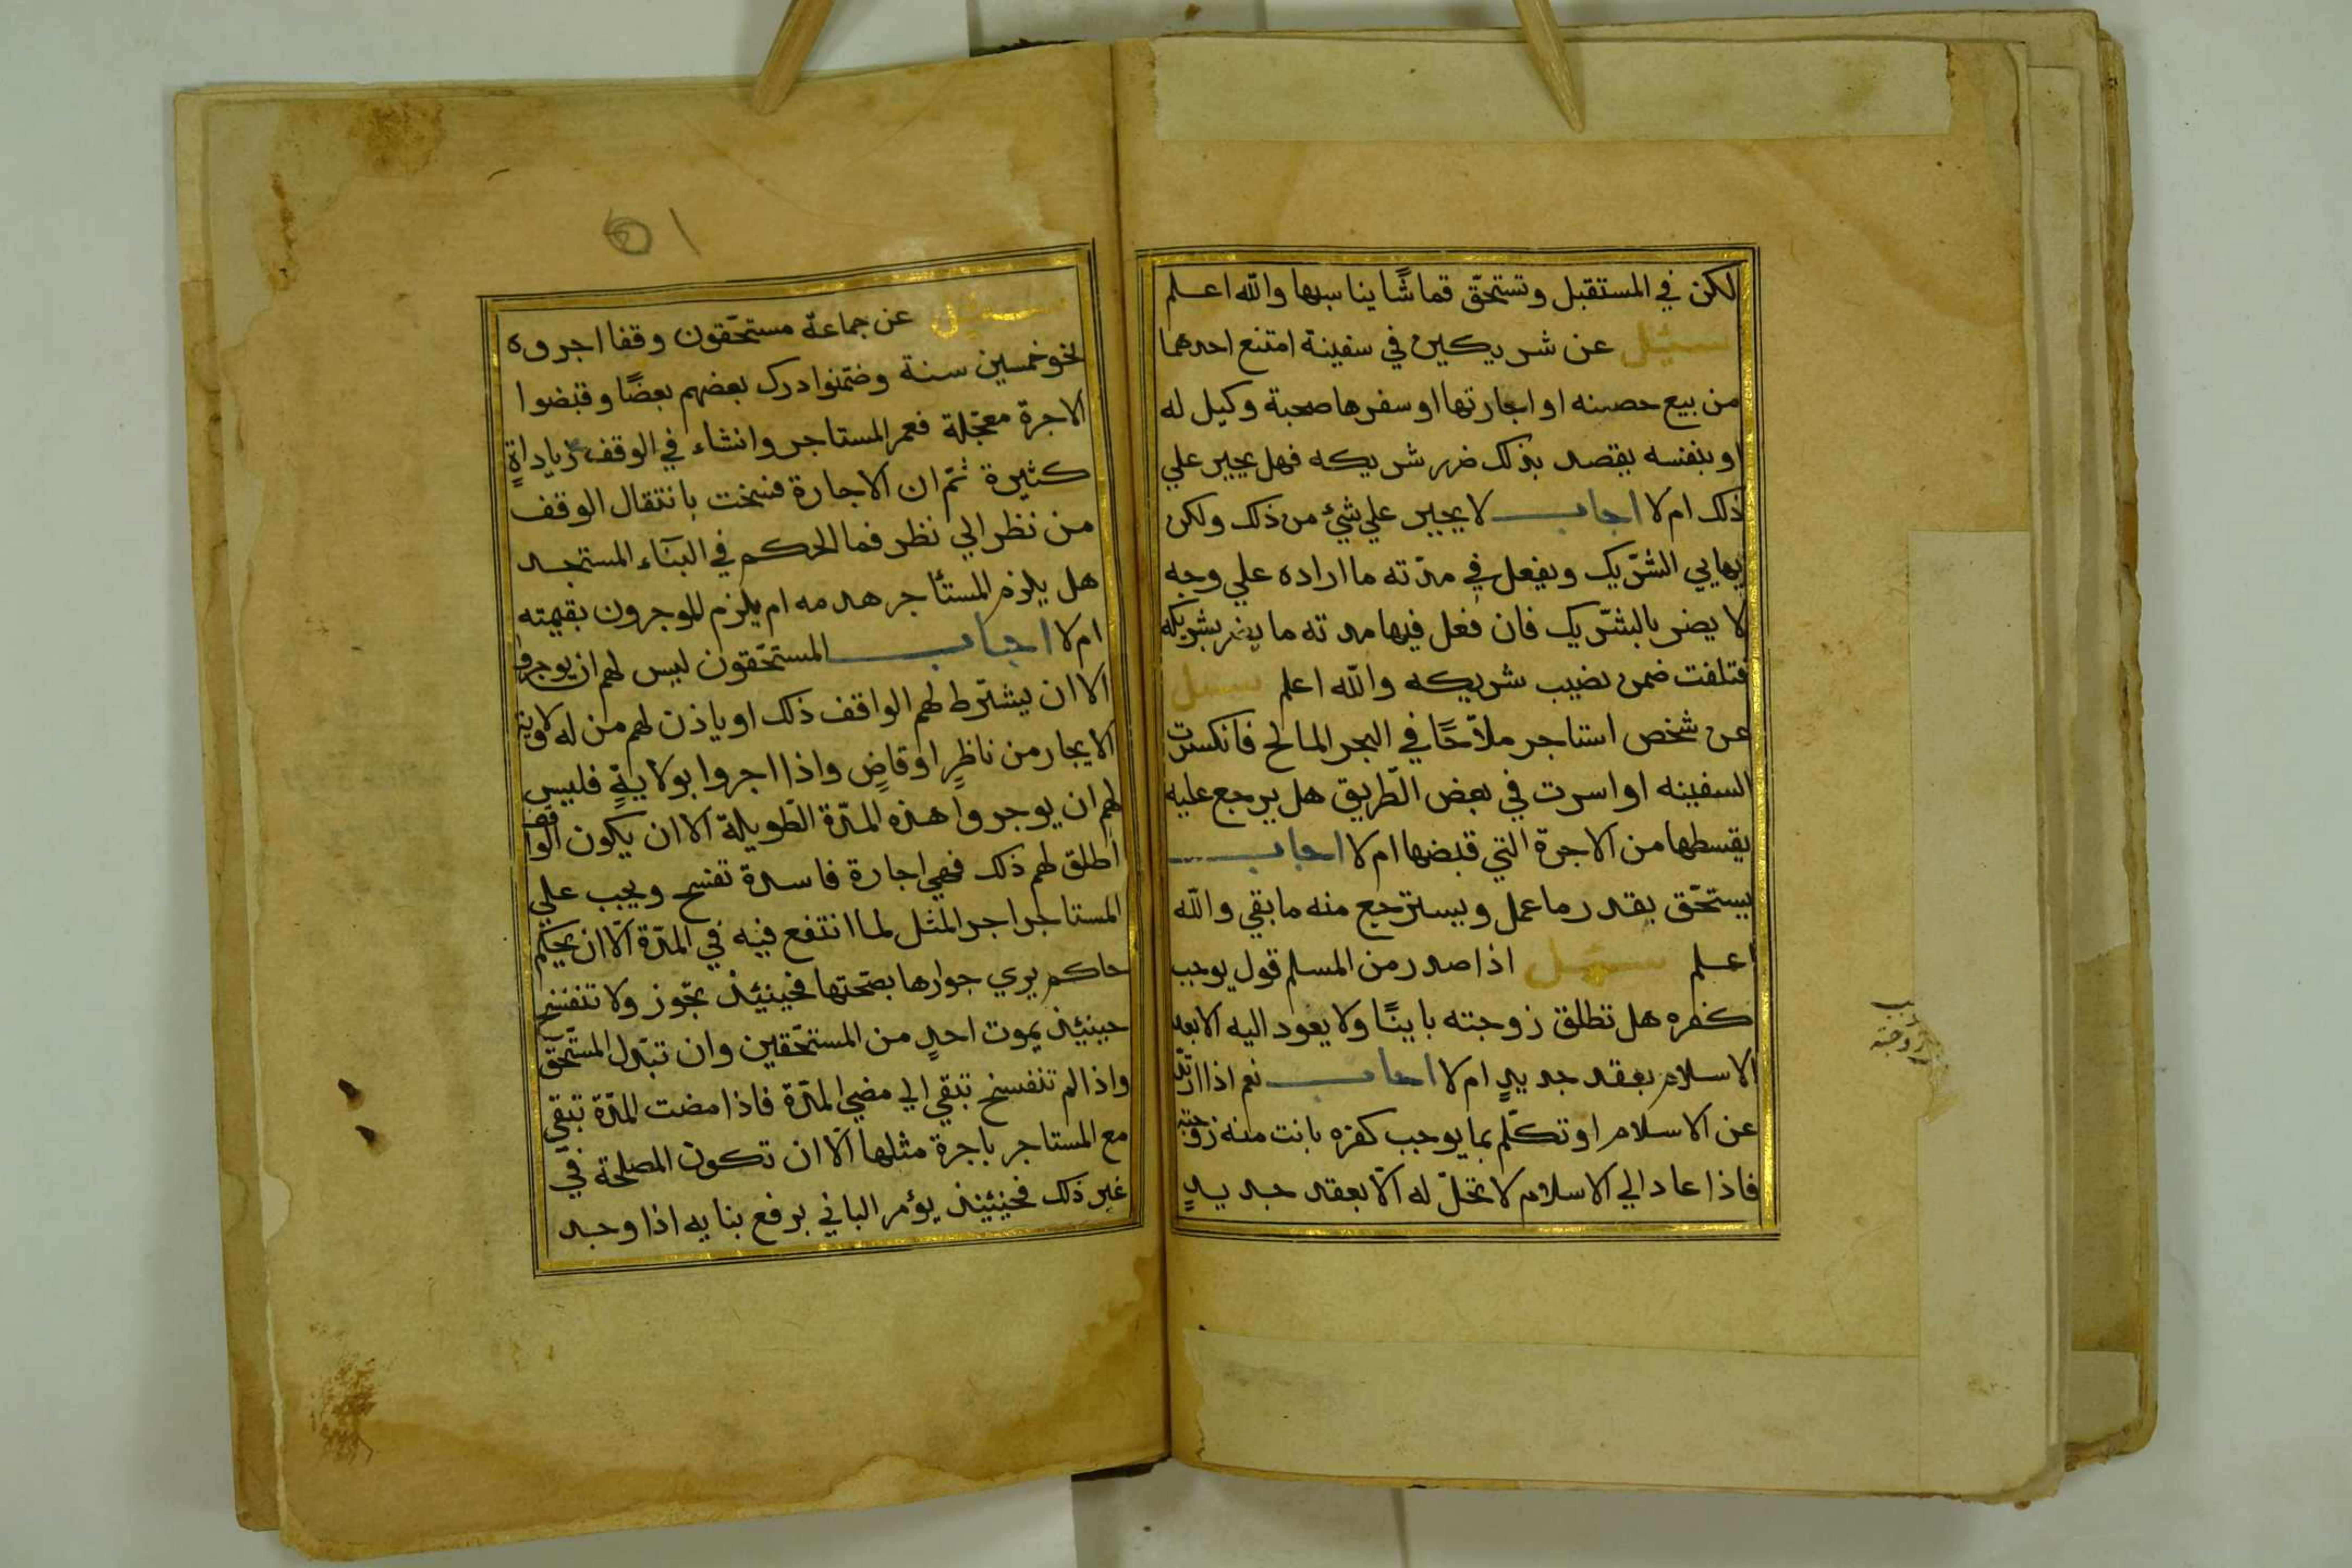 لكن في المستقبل وتستحقّ قماشًا يناسبها والله اعلم
سئل عن شريكين في سفينة امتنع احدهما
من بيع حصته او اجارتها او سفرها صحبة وكيل له
او بنفسه يقصد بذلك ضرر شريكه فهل يجبر علي
ذلك ام لا اجاب لا يجبر علي شيء من ذلك ولكن
يهايي الشريك ويفعل في مدّته ما اراده علي وجه
لا يضر بالشّريك فان فعل فيها مدته ما يضر بشريكه
فتلفت ضمن نصيب شريكه والله اعلم سئل
عن شخص استاجر ملاّحًا في البحر المالح فانكسرت
السفينه او اسرت في بعض الطّريق هل يرجع عليه
بقسطها من الاجرة التي قبضها ام لا اجاب
يستحّق بقدر ما عمل ويسترجع منه ما بقي والله
اعلم سئل اذا صدر من المسلم قول يوجب
كفره هل تطلق زوجته باينًا ولا يعود اليه الا بعد
الاسلام بعقد جديدٍ ام لا اجاب نعم اذا ارتدّ
عن الاسلام او تكلّم بما يوجب كفره بانت منه زوجته
فاذا عاد الي الاسلام لا تحلّ له الاّ بعقد جديدٍ
زوجته
٥١
سئل عن جماعة مستحّقون وقفا اجروه
نحو خمسين سنة وضمّنوا درك بعضهم بعضًا وقبضوا
الاجرة معجّلة فعمر المستاجر وانشاء في الوقف زياداةٍ
كثيرة ثمّ ان الاجارة فسخت بانتقال الوقف
من نظر الي نظر فما الحكم في البنآء المستجد
هل يلزم المستأجر هدمه ام يلزم الموجرون بقيمته
ام لا اجاب المستحّقون ليس لهم ان يوجروا
الا ان يشترط لهم الواقف ذلك او ياذن لهم من له ولاية
الايجار من ناظرٍ او قاضٍ واذا اجروا بولايةٍ فليس
لهم ان يوجروا هذه المدّة الطّويلة الا ان يكون الواقف
اطلق لهم ذلك فهي اجارة فاسدة تفسخ ويجب علي
المستاجر اجر المثل لما انتفع فيه في المدّة الاّ ان يحكم
حاكم يري جوازها بصّحتها فحينيئذ تجّوز ولا تنفسخ
حينيئذ بموت احدٍ من المستحّقين وان تبدّل المستّحقّ
واذا لم تنفسخ تبقي الي مضي المدّة فاذا مضت المدّة تبقي
مع المستاجر باجرة مثلها الّا ان تكون المصلحة في
غير ذلك فحينيئذ يؤمر الباني برفع بنايه اذا وجد